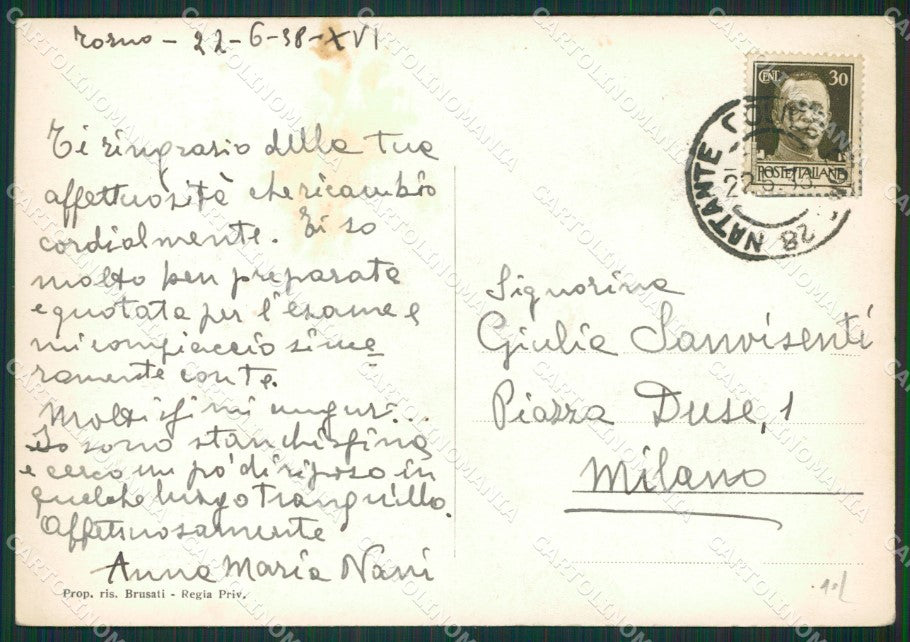 Torno - 22-6-38-XVI
Ti ringrazio della tua
affettuosità che ricambio
cordialmente. Ti so
molto ben preparata
e quotata per l'esame e
mi compiaccio since
ramente con te.
Moltissimi auguri...
Io sono stanchissima
e cerco un po' di riposo in
qualche luogo tranquillo.
Affettuosamente
Anna Maria Nani
Prop. ris. Brusati - Regia Priv.
CENT. 30
POSTE ITALIANE
28 NATANTE
Signorina
Giulia Sanvisenti
Piazza Duse, 1
Milano
CARTOLINOMANIA